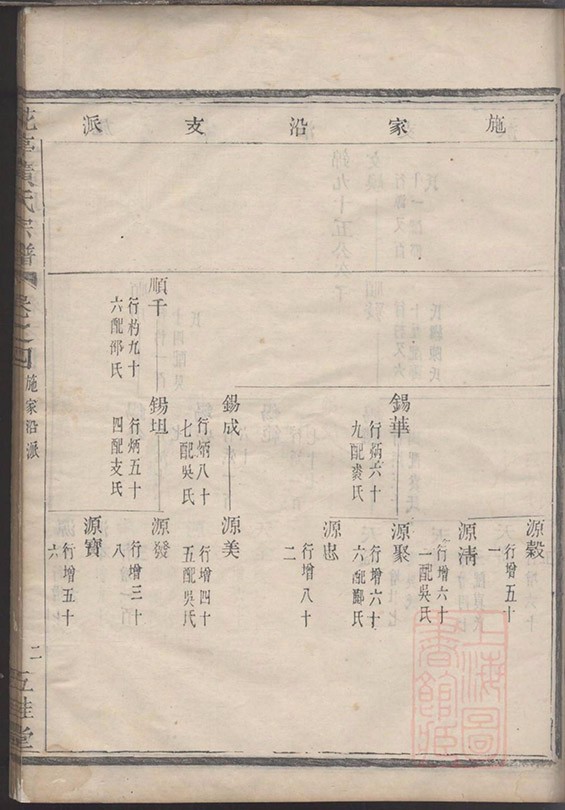 施家沿支派
順干
行杓九十
六配邵氏
錫華
行炳六十
九配裘氏
錫成
行炳八十
七配吳氏
錫坦
行炳五十
四配支氏
源穀
行增五十
一
源清
行增六十
一配吳氏
源聚
行增六十
六配鄞氏
源忠
行增八十
二
源美
行增四十
五配吳氏
源發
行增三十
八
源寶
行增五十
六
氏宗譜
卷之四
施家沿派
二
五桂堂
上海圖
書館藏